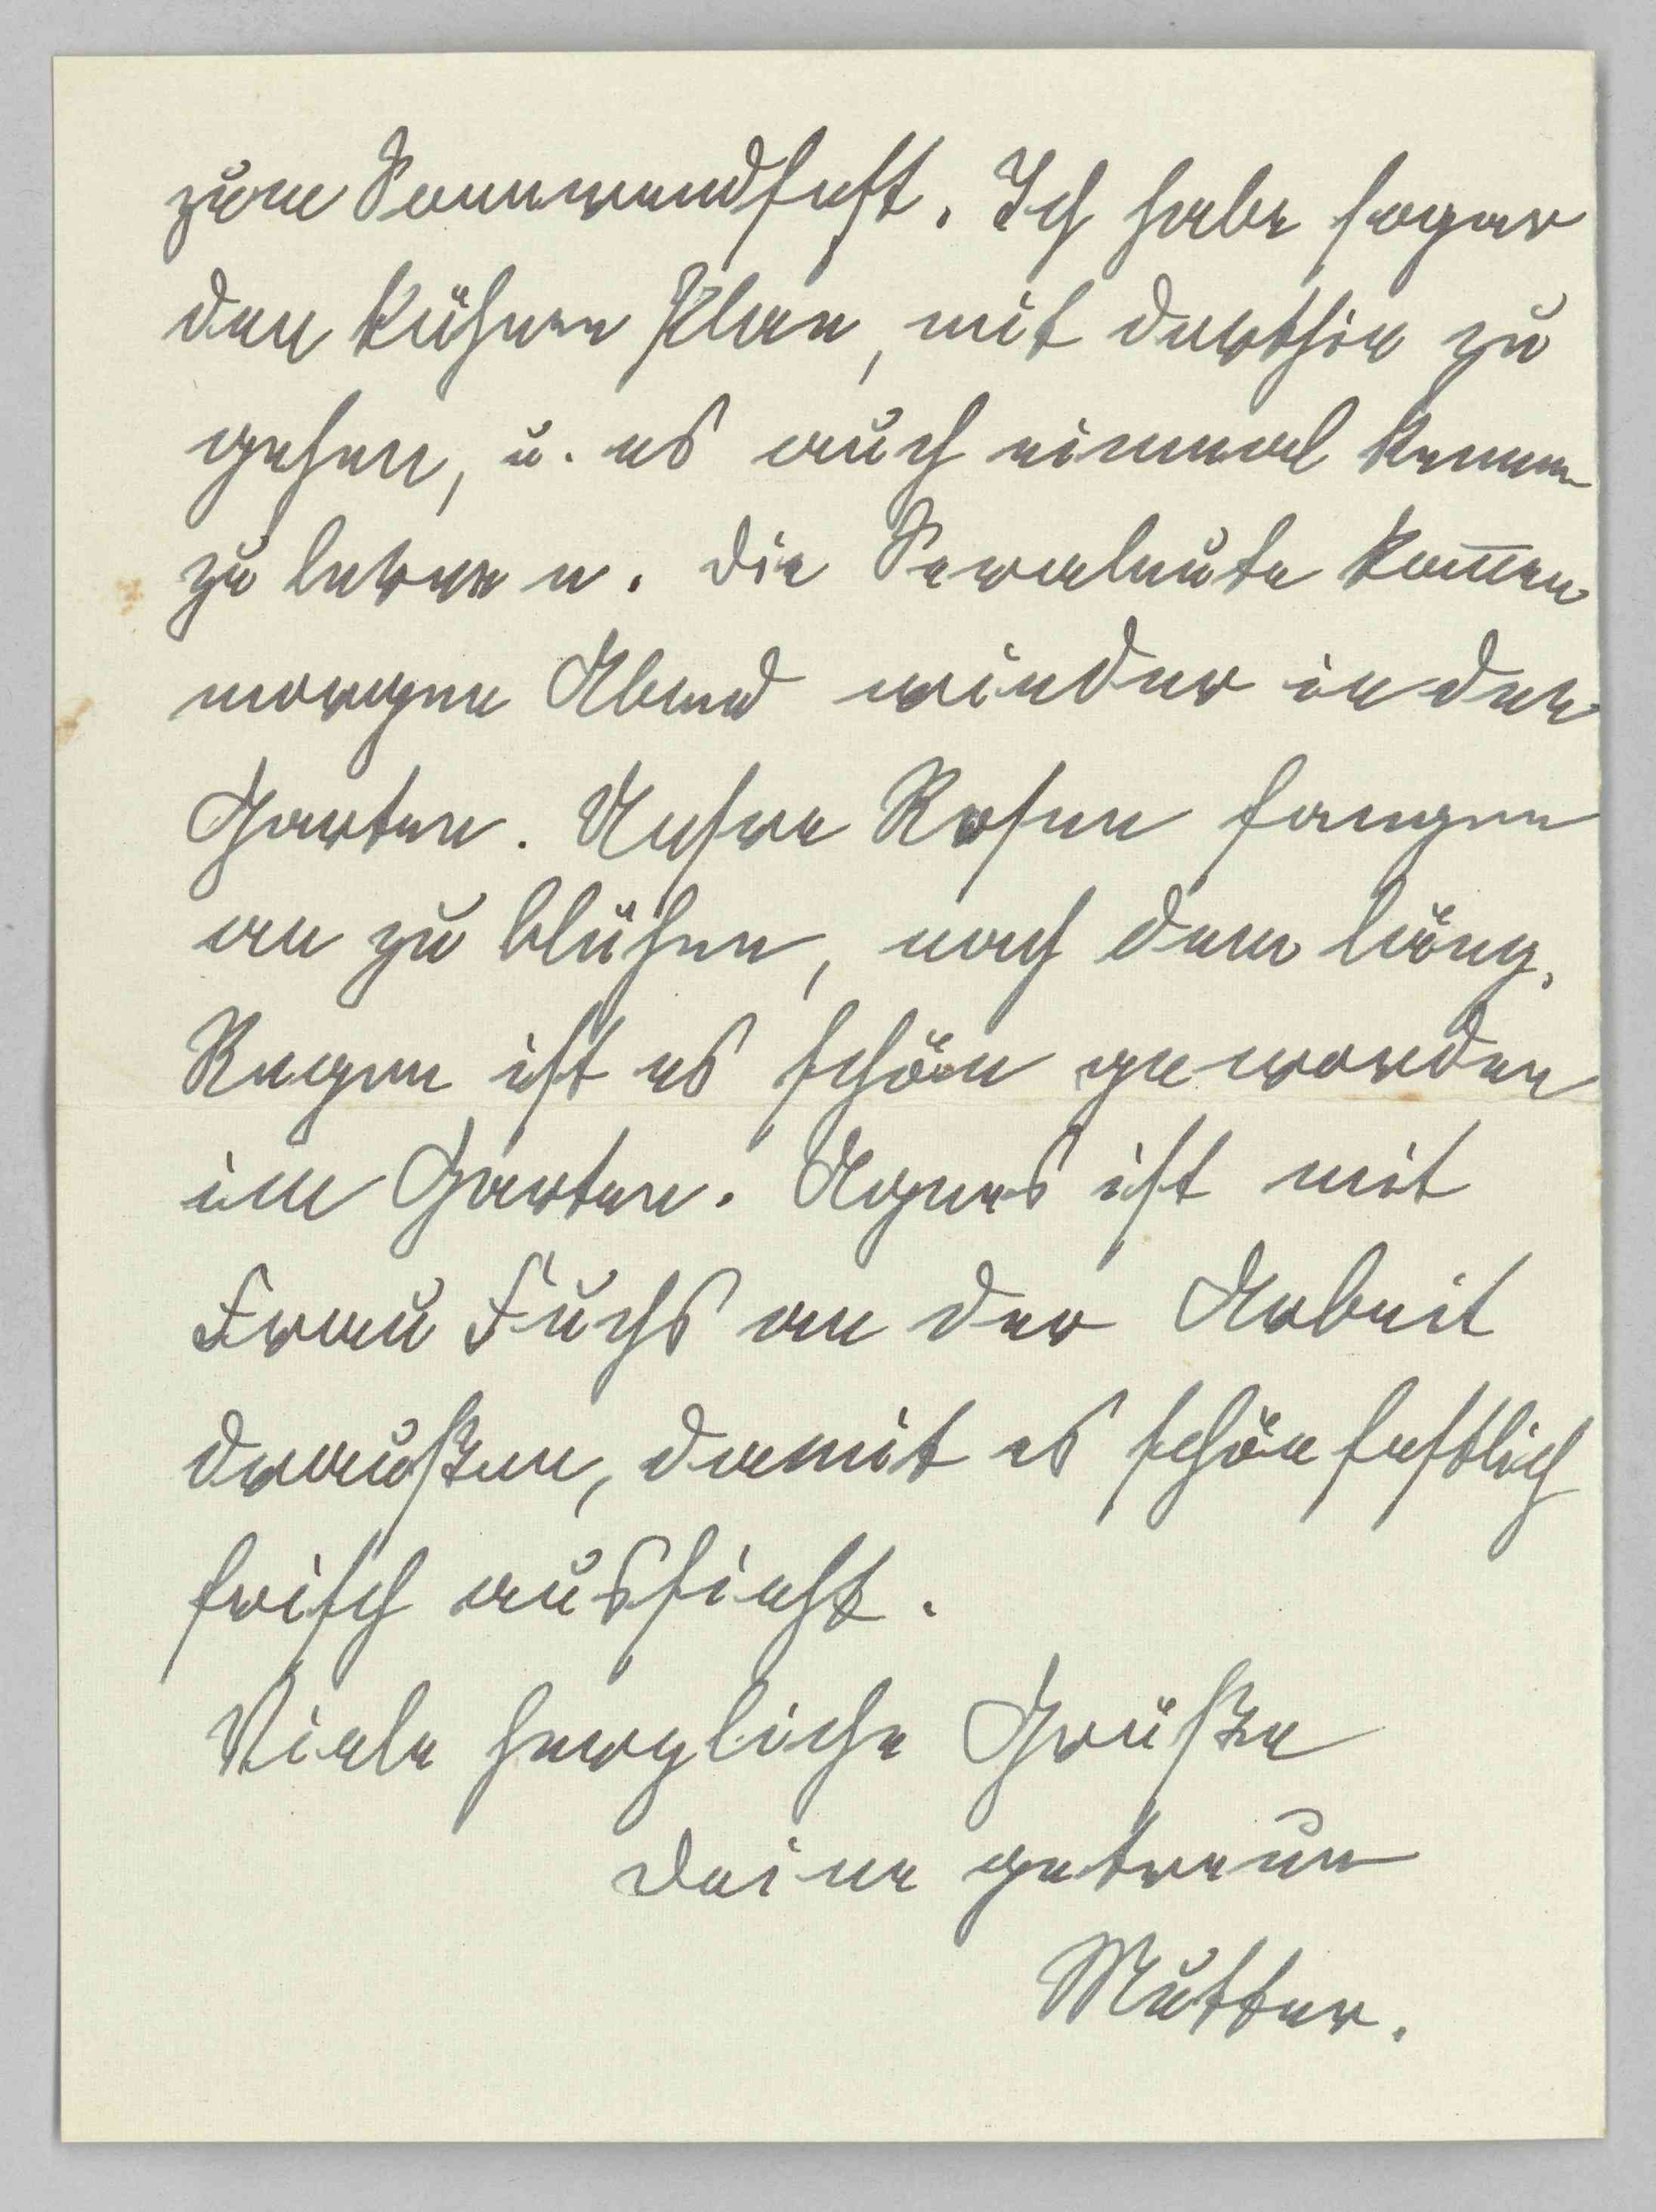 zum Sonnwendfest. Ich habe sogar
den kühnen Plan, mit dorthin zu
gehen, u. es auch einmal kennen
zu lernen. Die Seraleute kom̅en
morgen Abend wieder in den
Garten. Unsre Rosen fangen
an zu blühen, nach dem läng.
Regen ist es schön geworden
im Garten. Agnes ist mit
Frau Fuchs an der Arbeit
draußen, damit es schön festlich
frisch aussieht.
Viele herzliche Grüße
Deine getreue
Mutter.